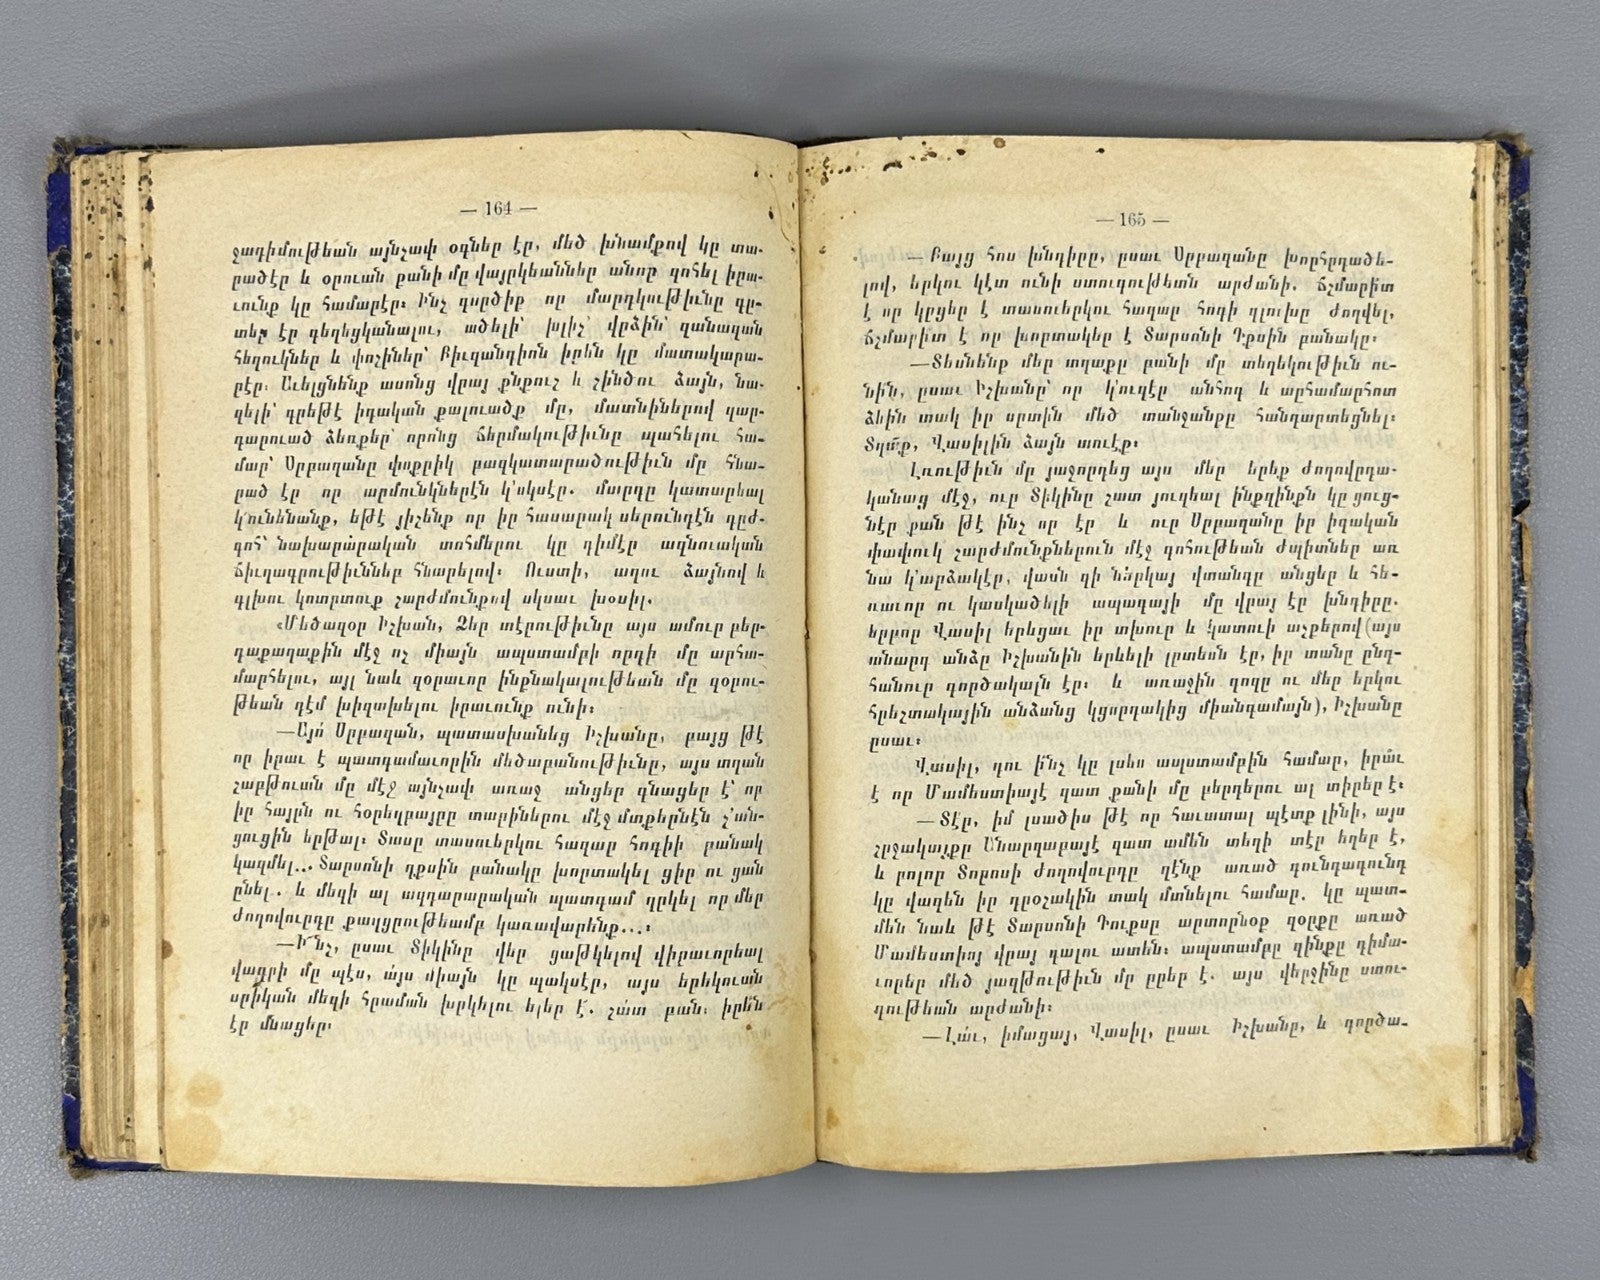 — 164 —
ջադիմութեան այնչափ օգներ էր, մեծ խնամքով կը տա-
րածէր և օրուան քանի մը վայրկեաններ անոր զոհել իրա-
ւունք կը համարէր։ Ինչ գործիք որ մարդկութիւնը գը-
տեր էր գեղեցկանալու, ածելի՝ խլիչ՝ վրձին՝ զանազան
հեղուկներ և փոշիներ՝ Բիւզանդիոն իրեն կը մատակարա-
րէր։ Աւելցնենք ասոնց վրայ քնքուշ և շինծու ձայն, նա-
զելի՝ գրեթէ իգական քալուածք մը, մատնիներով զար-
դարուած ձեռքեր՝ որոնց ճերմակութիւնը պահելու հա-
մար՝ Սրբազանը փոքրիկ բազկատարածութիւն մը հնա-
րած էր որ արմունկներէն կ՚սկսէր. մարդը կատարեալ
կ՚ունենանք, եթէ յիշենք որ իր հասարակ սերունդէն դըժ-
գոհ՝ նախարարական տոհմերու կը դիմէր ազնուական
ճիւղագրութիւններ հնարելով։ Ուստի, աղու ձայնով և
գլխու կոտրտուք շարժմունքով սկսաւ խօսիլ.
«Մեծազօր Իշխան, Ձեր տէրութիւնը այս ամուր բեր-
դաքաղաքին մէջ ոչ միայն ապստամբի որդի մը արհա-
մարհելու, այլ նաև զօրաւոր ինքնակալութեան մը զօրու-
թեան դէմ խիզախելու իրաւունք ունի։
—Այո՛ Սրբազան, պատասխանեց Իշխանը, բայց թէ
որ իրաւ է պատգամաւորին մեծաբանութիւնը, այս տղան
շաբթուան մը մէջ այնչափ առաջ անցեր գնացեր է՝ որ
իր հայրն ու հօրեղբայրը տարիներու մէջ մտքերնէն չ՚ան-
ցուցին երթալ։ Տասը տասուերկու հազար հոգիի բանակ
կազմել... Տարսոնի դքսին բանակը խորտակել ցիր ու ցան
ընել. և մեզի ալ ազդարարական պատգամ ղրկել որ մեր
ժողովուրդը քաղցրութեամբ կառավարենք...։
—Ի՞նչ, ըսաւ Տիկինը վեր ցաթկելով վիրաւորեալ
վագրի մը պէս, այս միայն կը պակսէր, այս երեկուան
սրիկան մեզի հրաման խրկելու ելեր է. շա՛տ բան։ իրե՞ն
էր մնացեր։
— 165 —
— Բայց հոս խնդիրը, ըսաւ Սրբազանը խորհրդածե-
լով, երկու կէտ ունի ստուգութեան արժանի. ճշմարի՞տ
է որ կըրցեր է տասուերկու հազար հոգի գլուխը ժողվել,
ճշմարի՞տ է որ խորտակեր է Տարսոնի Դքսին բանակը։
—Տեսնենք մեր տղաքը բանի մը տեղեկութիւն ու-
նի՞ն, ըսաւ Իշխանը՝ որ կ՚ուզէր անհոգ և արհամարհոտ
ձևին տակ իր սրտին մեծ տանջանքը հանդարտեցնել։
Տղա՛ք, Վասիլին ձայն տուէք։
Լռութիւն մը յաջորդեց այս մեր երեք ժողովրդա-
կանաց մէջ, ուր Տիկինը շատ յուզեալ ինքզինքն կը ցուց-
նէր քան թէ ինչ որ էր և ուր Սրբազանը իր իգական
փափուկ շարժմունքներուն մէջ գոհութեան ժպիտներ առ
նա կ՚արձակէր, վասն զի ներկայ վտանգը անցեր և հե-
ռաւոր ու կասկածելի ապագայի մը վրայ էր խնդիրը.
երբոր Վասիլ երեցաւ իր տխուր և կատուի աչքերով (այս
անարդ անձը Իշխանին երևելի լրտեսն էր, իր տանը ընդ-
հանուր գործակալն էր։ և առաջին դոզը ու մեր երկու
հրեշտակային անձանց կցորդակից միանգամայն), Իշխանը
ըսաւ։
Վասիլ, դու ի՞նչ կը լսես ապստամբին համար, իրա՞ւ
է որ Մամեստիայէ զատ քանի մը բերդերու ալ տիրեր է։
—Տէր, իմ լսածիս թէ որ հաւատալ պէտք լինի, այս
շրջակայքը Անարզաբայէ զատ ամեն տեղի տէր եղեր է,
և բոլոր Տորոսի ժողովուրդը զէնք առած գունդագունդ
կը վազեն իր դրօշակին տակ մտնելու համար. կը պատ-
մեն նաև թէ Տարսոնի Դուքսը արտորնօք զօրքը առած
Մամեստիոյ վրայ գալու ատեն։ ապստամբը զինքը դիմա-
ւորեր մեծ յաղթութիւն մը ըրեր է. այս վերջինը ստու-
գութեան արժանի։
—Լա՛ւ, իմացայ, Վասիլ, ըսաւ Իշխանը, և գործա-